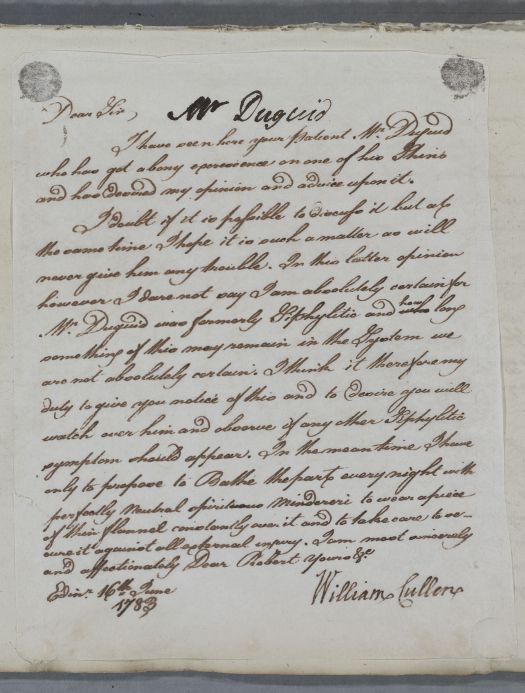 Dear Sir, Mr Duguid
I have seen here your patient Mr. Duguid
who has got a bony excrescence on one of his Shins
and has desired my opinion and advice upon it.
I doubt if it is possible to discuss it but at
the same time I hope it is such a matter as will
never give him any trouble. In this latter opinion
however I dare not say I am absolutely certain for
Mr. Duguid was formerly Siphylitic and how long
something of this may remain in the System we
are not absolutely certain. I think it therefore my
duty to give you notice of this and to desire you will
watch over him and observe if any other Siphylitic
symptom should appear. In the mean time I have
only to propose to Bathe the part every night with
perfectly neutral spirituous Mindereri to wear a piece
of thin flannel constantly over it and to take care to se-
cure it against all external injury. I am most sincerely
and affectionately Dear Robert yours &c
William Cullen
Edinr. 16th. June
1783